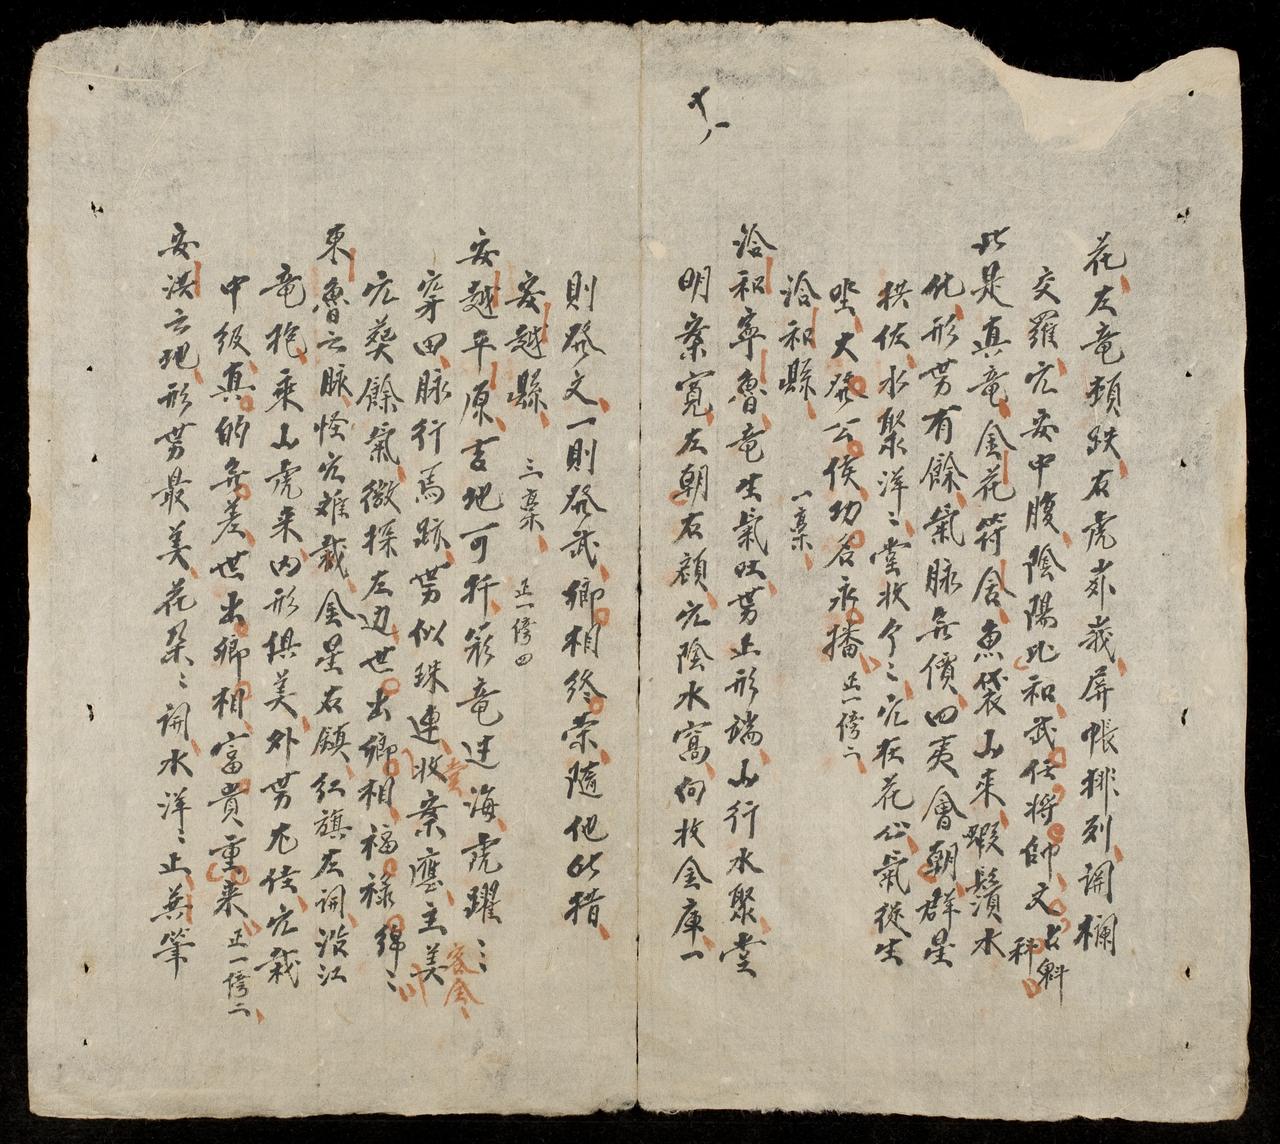 花左竜頓跌右虎峩屏帳排列開欄
交羅穴安中腹陰陽比和武任將帥文占魁科
此是真竜金花符舍魚袋山来蝦鬚水
化形势有餘氣脉無價四夷會朝群星
拱伏水聚洋〻堂收个〻穴在花心氣從生
坐大發公侯功名永播 正一傍二
洽和縣 一藁
洽和寧魯竜生氣吐势止形端山行水聚堂
明案寬左朝右顧穴陰水窩向收金庫一
则發文一則發武卿相終荣隨他此措
安越縣 三藁 正一傍四
安越平原吉地可扦竜过海虎躍〻
穿田脉行馬跡势似珠連收案應主美
穴葵餘氣微探左边世出卿相福祿綿〻
東魯云脉怪穴难裁金星右鎮紅旗左開江
竜抱乘山虎来内形俱美外势尤佳穴裁
中级真的無差世出卿相富貴重来 正一傍二
安洪云地形势最美花朶〻開水洋〻止無筆